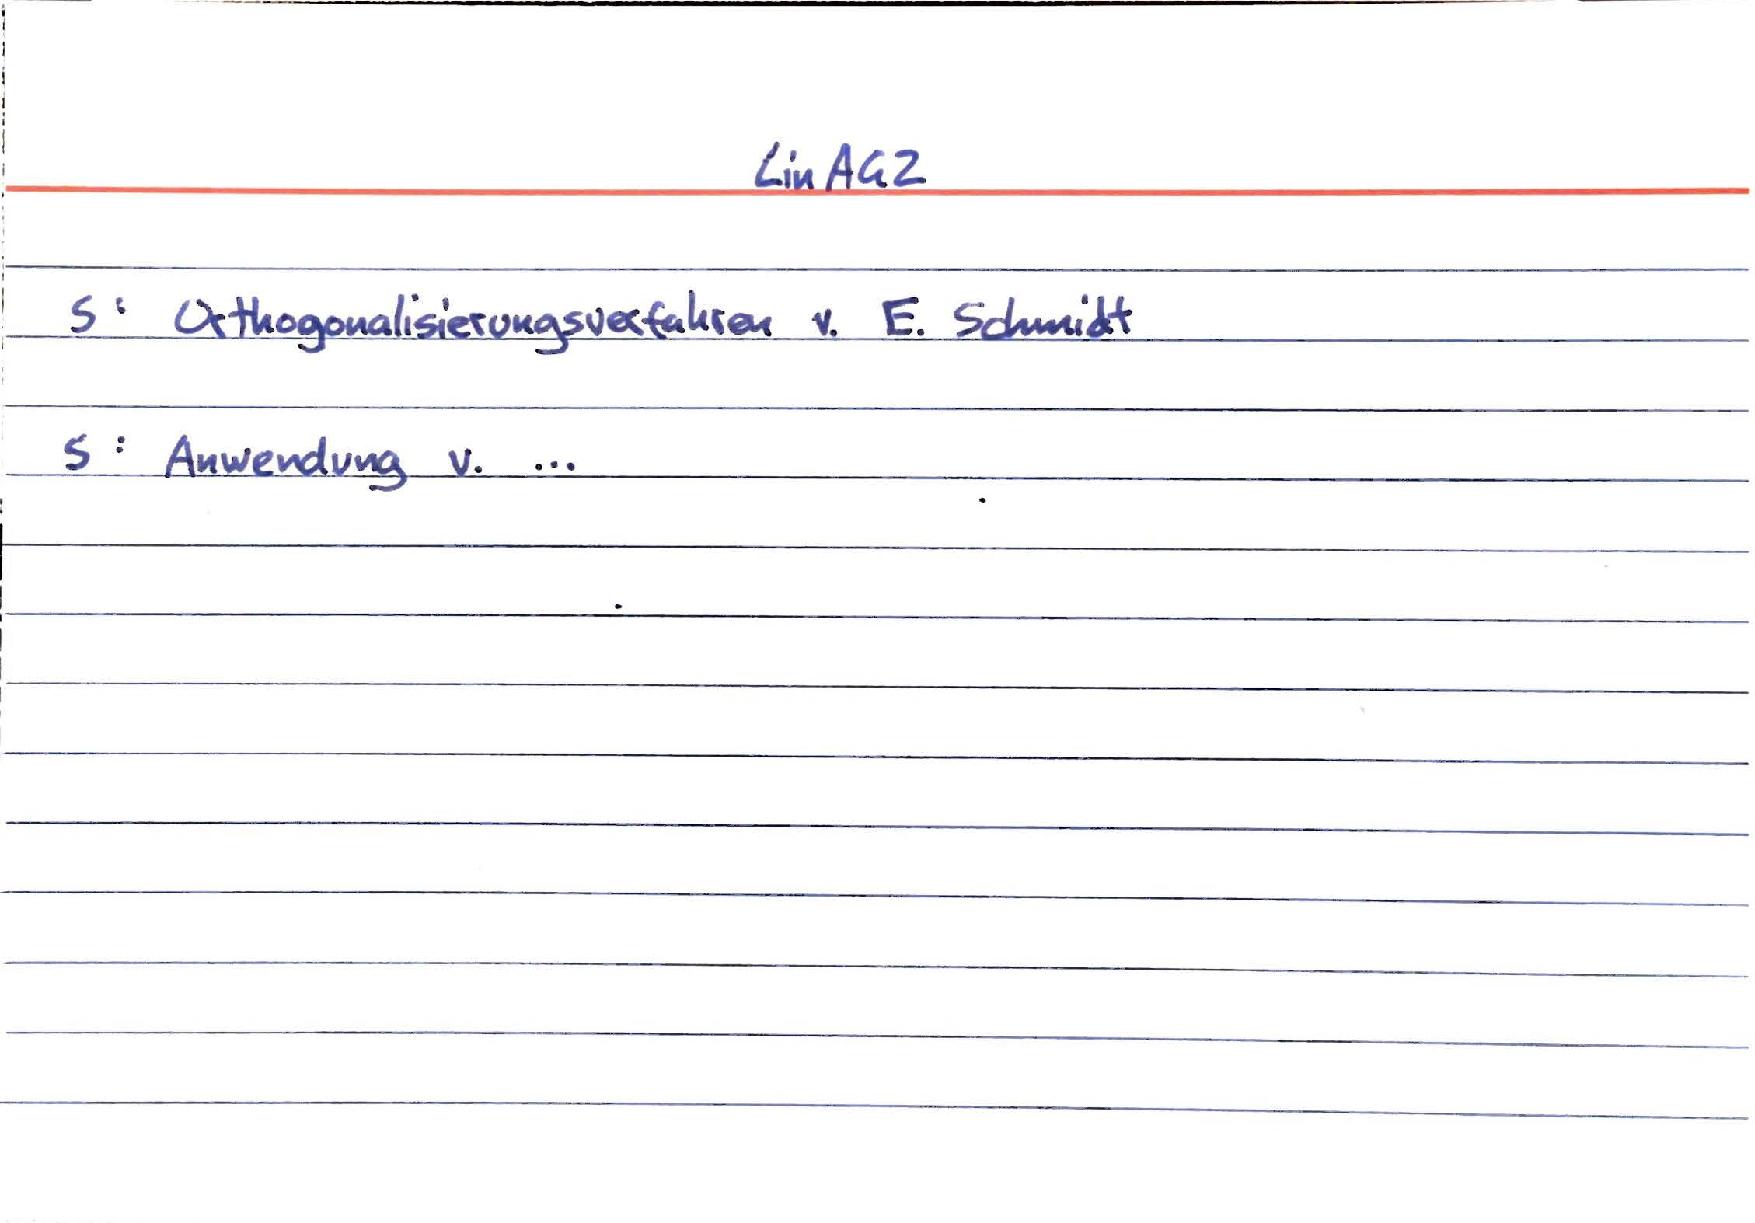 LinAG2
S: Orthogonalisierungsverfahren v. E. Schmidt
S: Anwendung v. ...